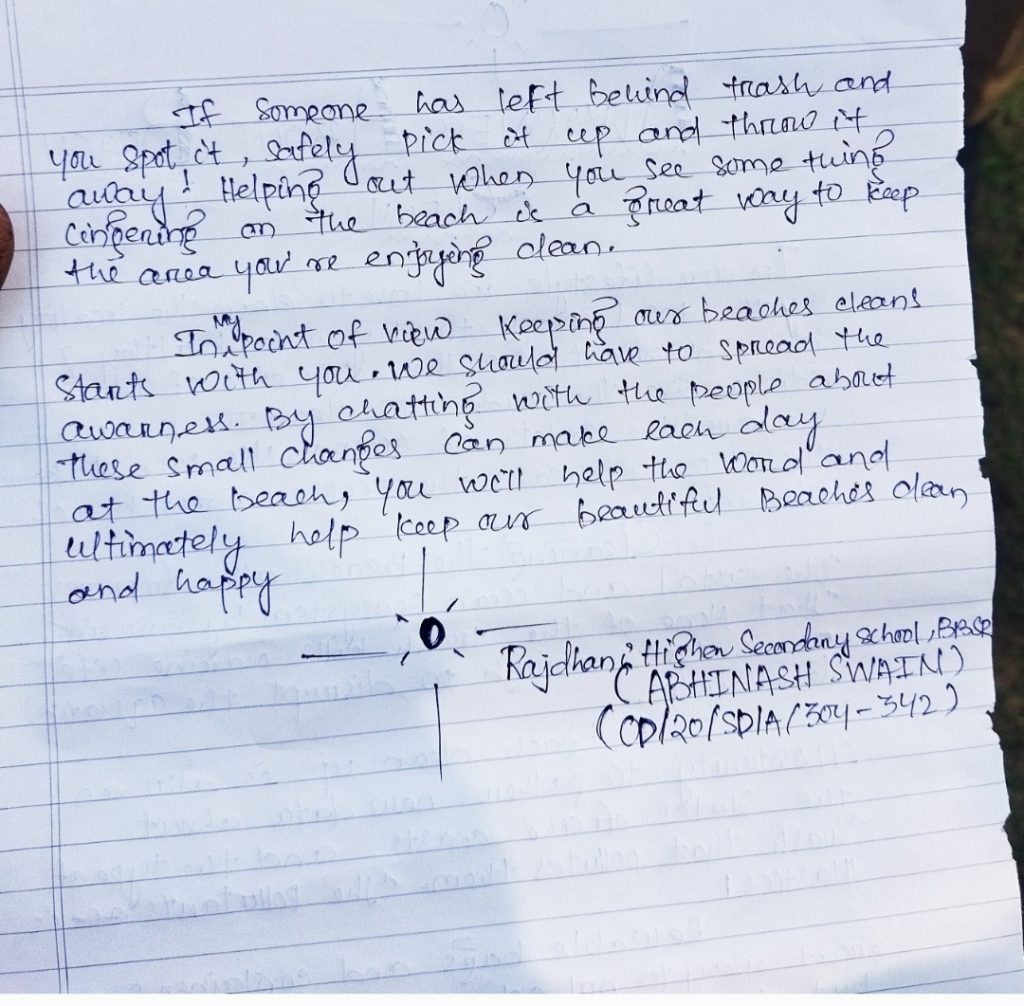 If someone has left behind trash and
you spot it, safely pick it up and throw it
away! Helping out when you see some thing
lingering on the beach is a great way to keep
the area you're enjoying clean.
In My point of view Keeping our beaches cleans
starts with you. We should have to spread the
awarness. By chatting with the people about
these small changes can make each day
at the beach, you will help the word and
ultimately help keep our beautiful Beaches clean
and happy
Rajdhani Higher Secondary school, BBSR
(ABHINASH SWAIN)
(CD/20/SD/A/304-342)